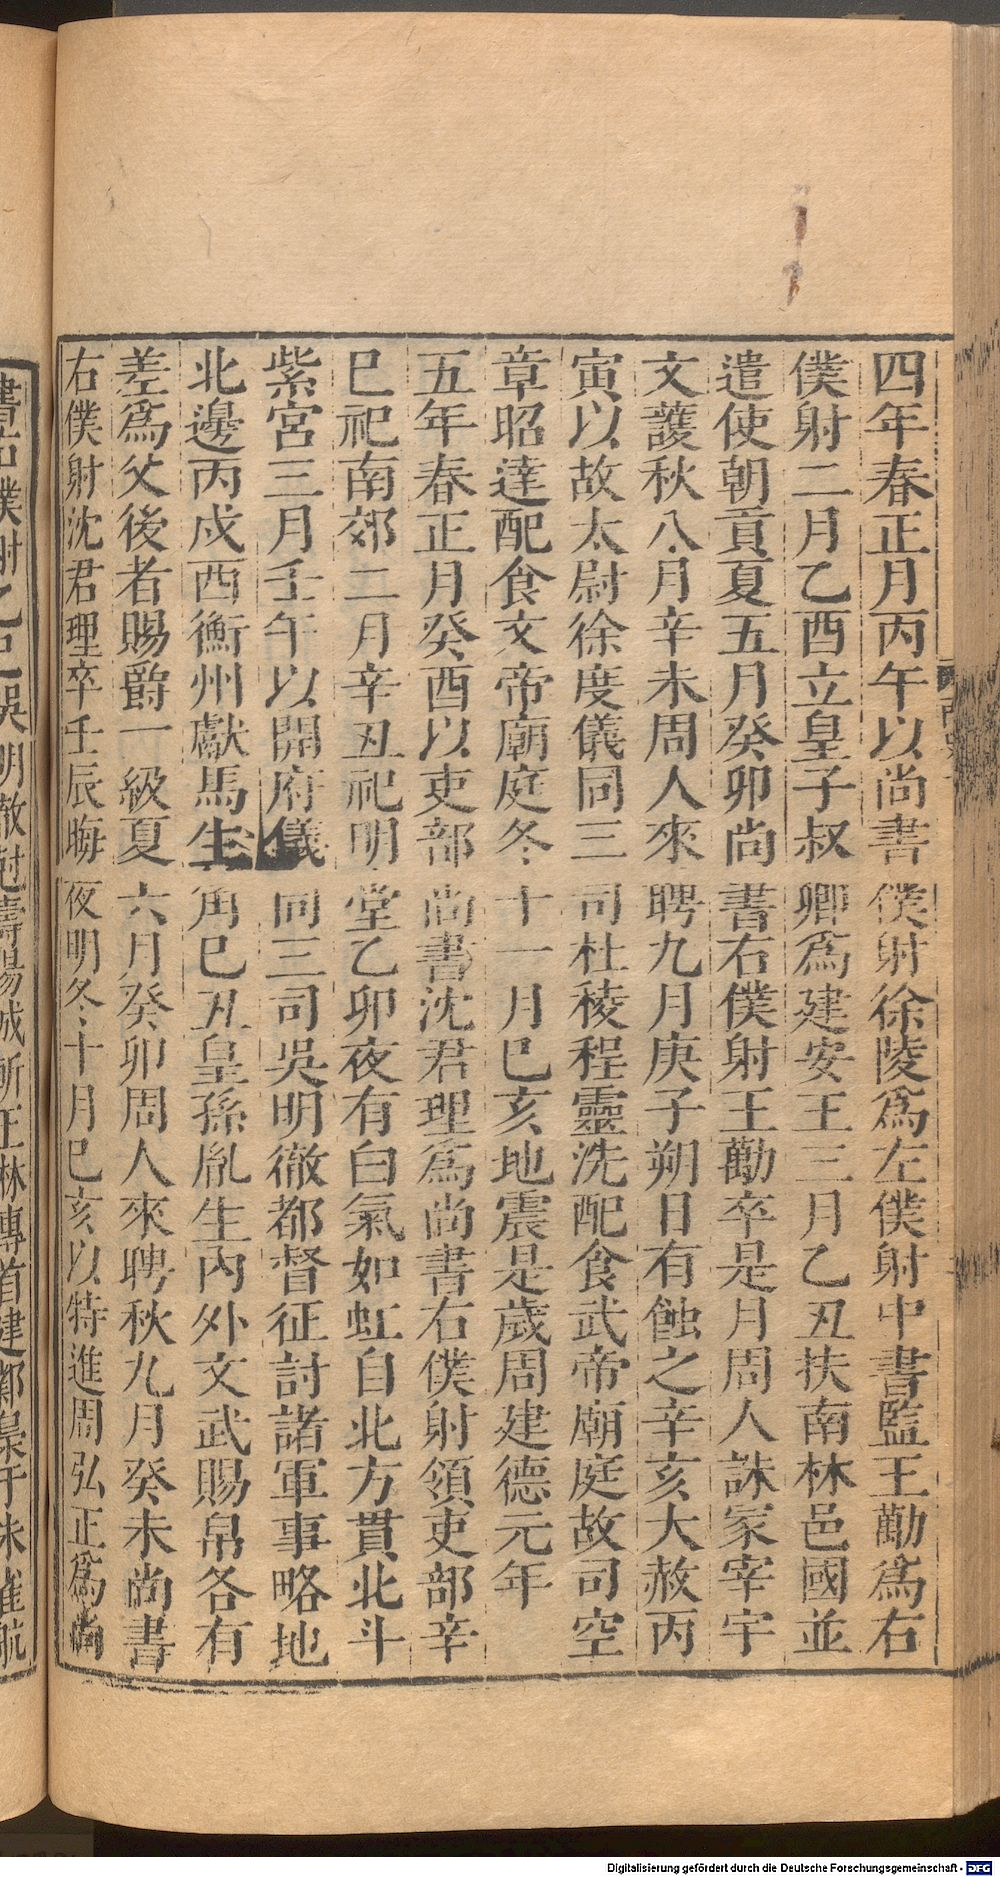 四年春正月丙午以尚書僕射徐陵爲左僕射中書監王勱爲右
僕射二月乙酉立皇子叔卿爲建安王三月乙丑扶南林邑國並
遣使朝貢夏五月癸卯尚書右僕射王勱卒是月周人誅冢宰宇
文護秋八月辛未周人來聘九月庚子朔日有蝕之辛亥大赦丙
寅以故太尉徐度儀同三司杜稜程靈洗配食武帝廟庭故司空
章昭達配食文帝廟庭冬十一月巳亥地震是歲周建德元年
五年春正月癸酉以吏部尚書沈君理爲尚書右僕射領吏部辛
巳祀南郊二月辛丑祀明堂乙卯夜有白氣如虹自北方貫北斗
紫宮三月壬午以開府儀同三司吳明徹都督征討諸軍事略地
北邊丙戍西衡州獻馬生角巳丑皇孫胤生內外文武賜帛各有
差爲父後者賜爵一級夏六月癸卯周人來聘秋九月癸未尚書
右僕射沈君理卒壬辰晦夜明冬十月巳亥以特進周弘正爲尚
書右僕射乙巳吳明徹尅壽陽城斬王琳傳首建鄴梟于朱雀航
Digitalisierung gefördert durch die Deutsche Forschungsgemeinschaft - DFG